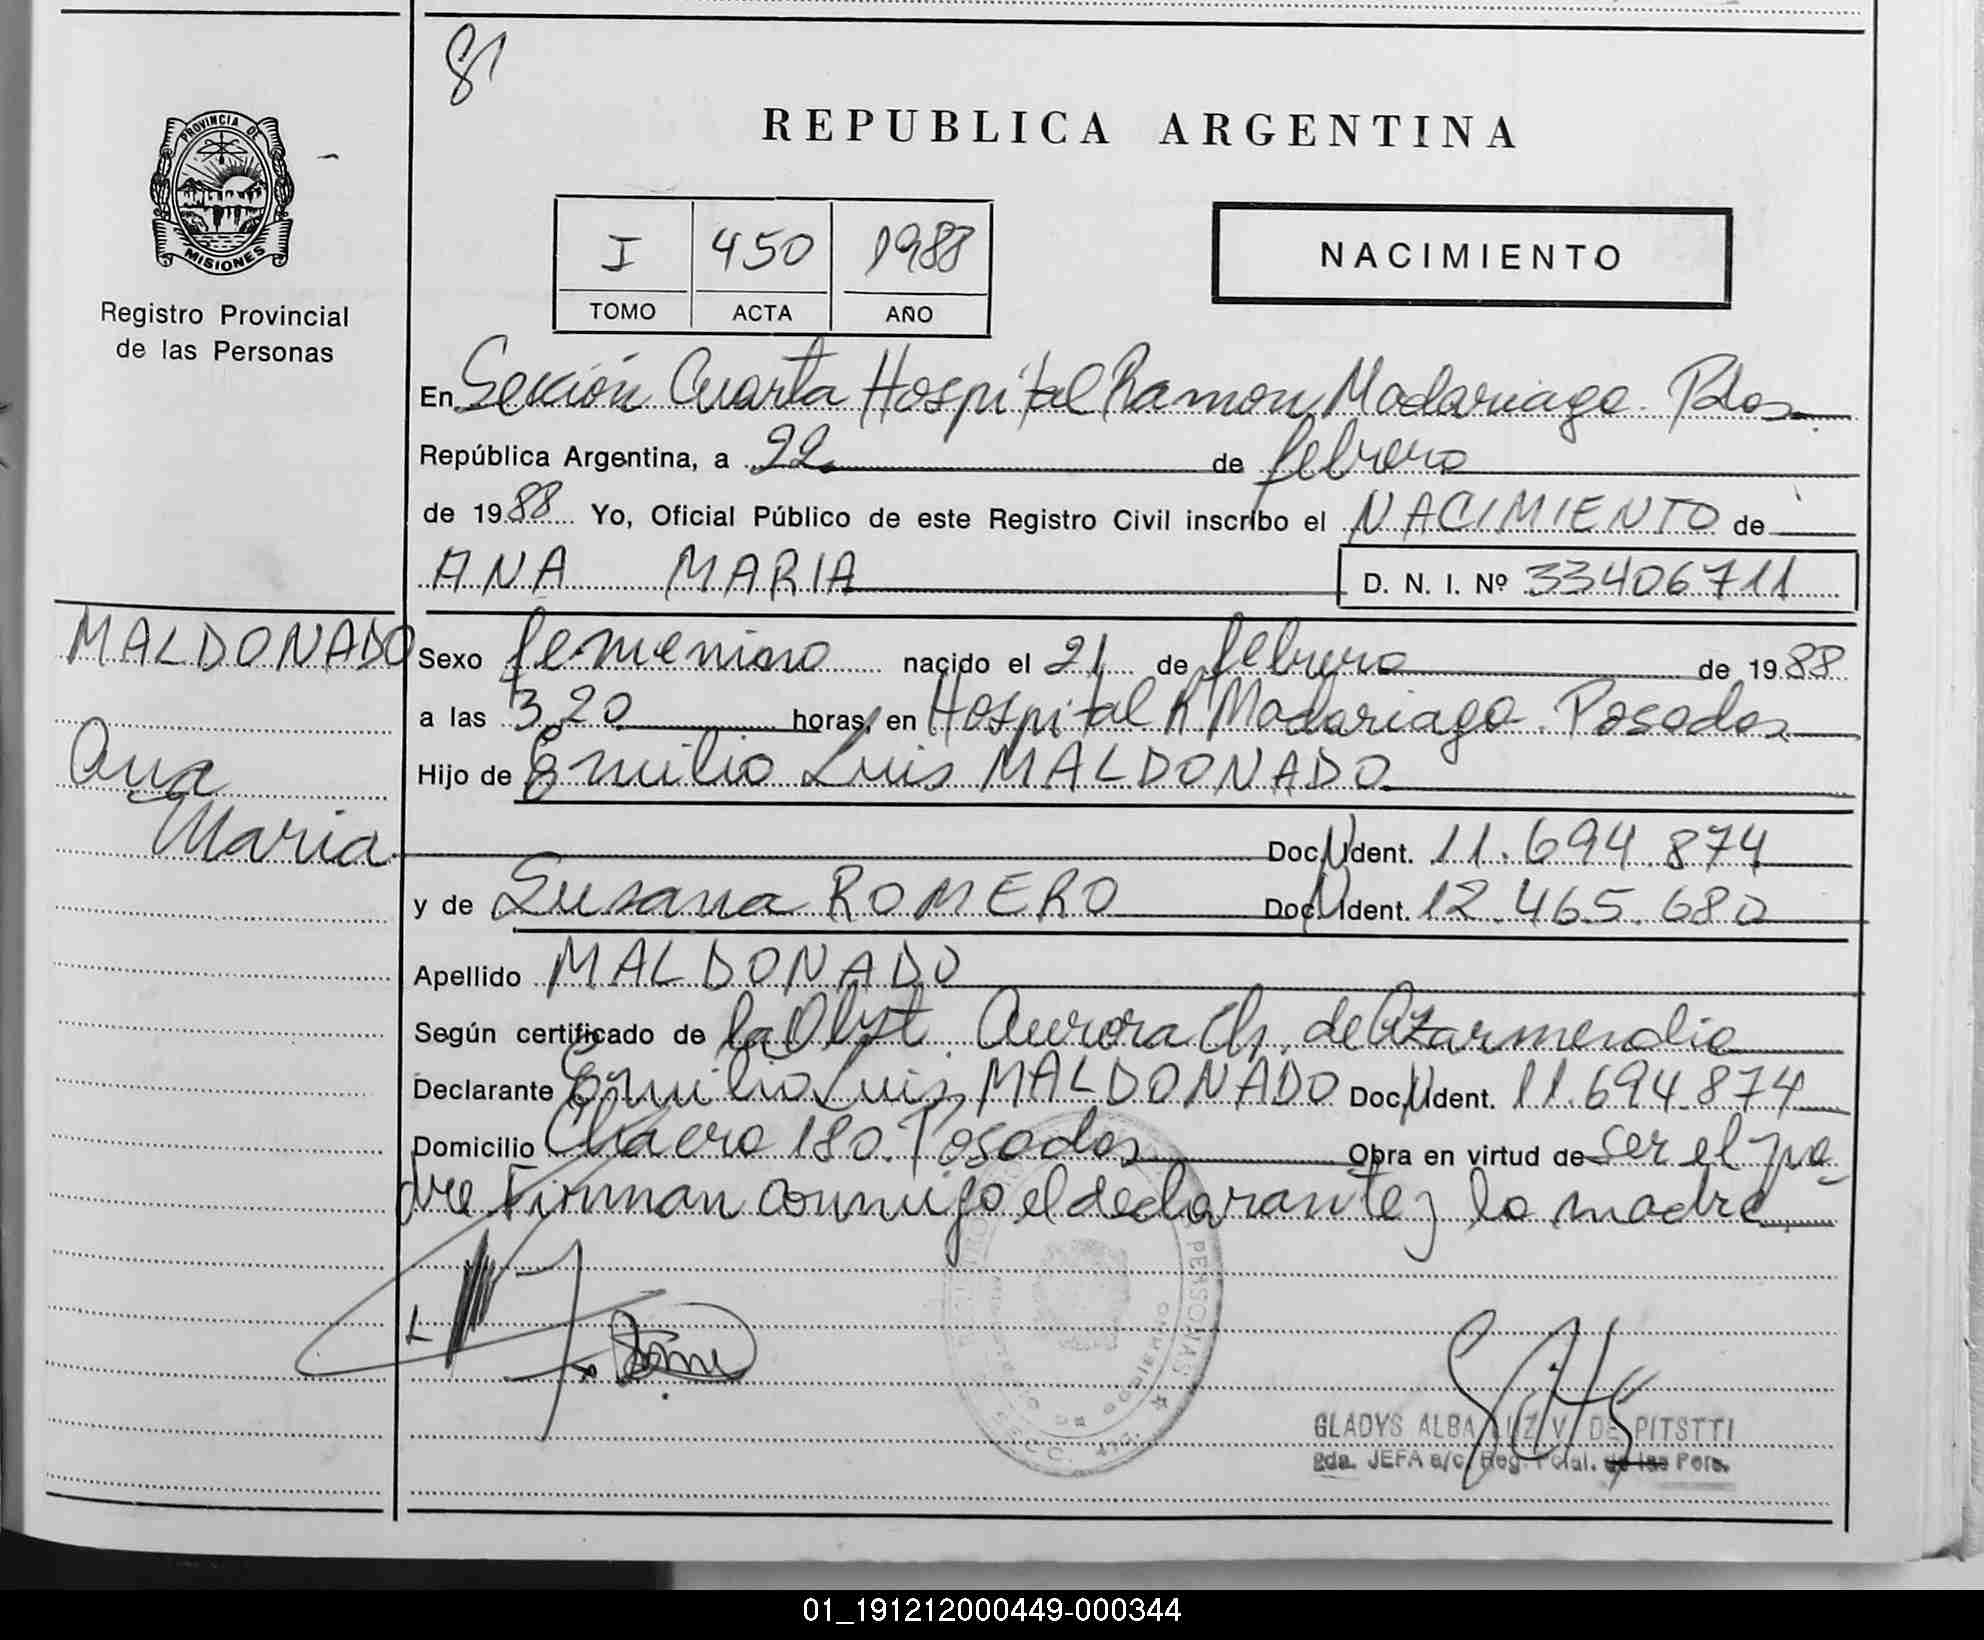 81
REPUBLICA ARGENTINA
PROVINCIA DE
MISIONES
Registro Provincial
de las Personas
I 450 1988
TOMO ACTA AÑO
NACIMIENTO
En Sección Cuarta Hospital Ramon Madariaga. Pdas.
República Argentina, a 22 de febrero
de 1988 Yo, Oficial Público de este Registro Civil inscribo el NACIMIENTO de
ANA MARIA D. N. I. Nº 33406711
MALDONADO
Ana
Maria
Sexo femenino nacido el 21 de febrero de 1988
a las 3,20 horas, en Hospital R. Madariaga. Posadas
Hijo de Emilio Luis MALDONADO.
Doc. N Ident. 11.694.874
y de Susana ROMERO Doc. N Ident. 12.465.680
Apellido MALDONADO
Según certificado de la Obst. Aurora Ch. de Azarmendia
Declarante Emilio Luis MALDONADO Doc. N Ident. 11.694.874
Domicilio 180. Posadas Obra en virtud de ser el pa-
dre Firman conmigo el declarante y la madre
PERSONAS
GLADYS ALBA LUZ V. DE PITSTTI
2da. JEFA a/c. Reg. Pcial. de las Pers.
01_191212000449-000344